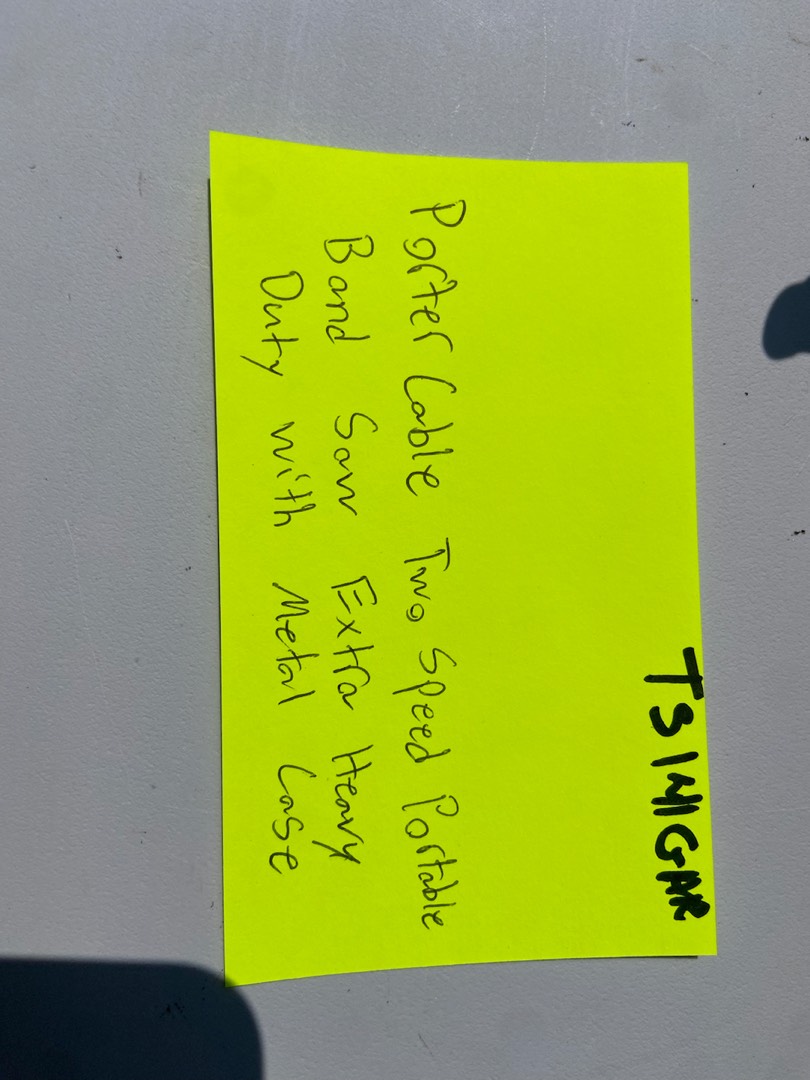 TSINIGAR
Porter Cable Two Speed Portable
Band Saw Extra Heavy
Duty with Metal Case